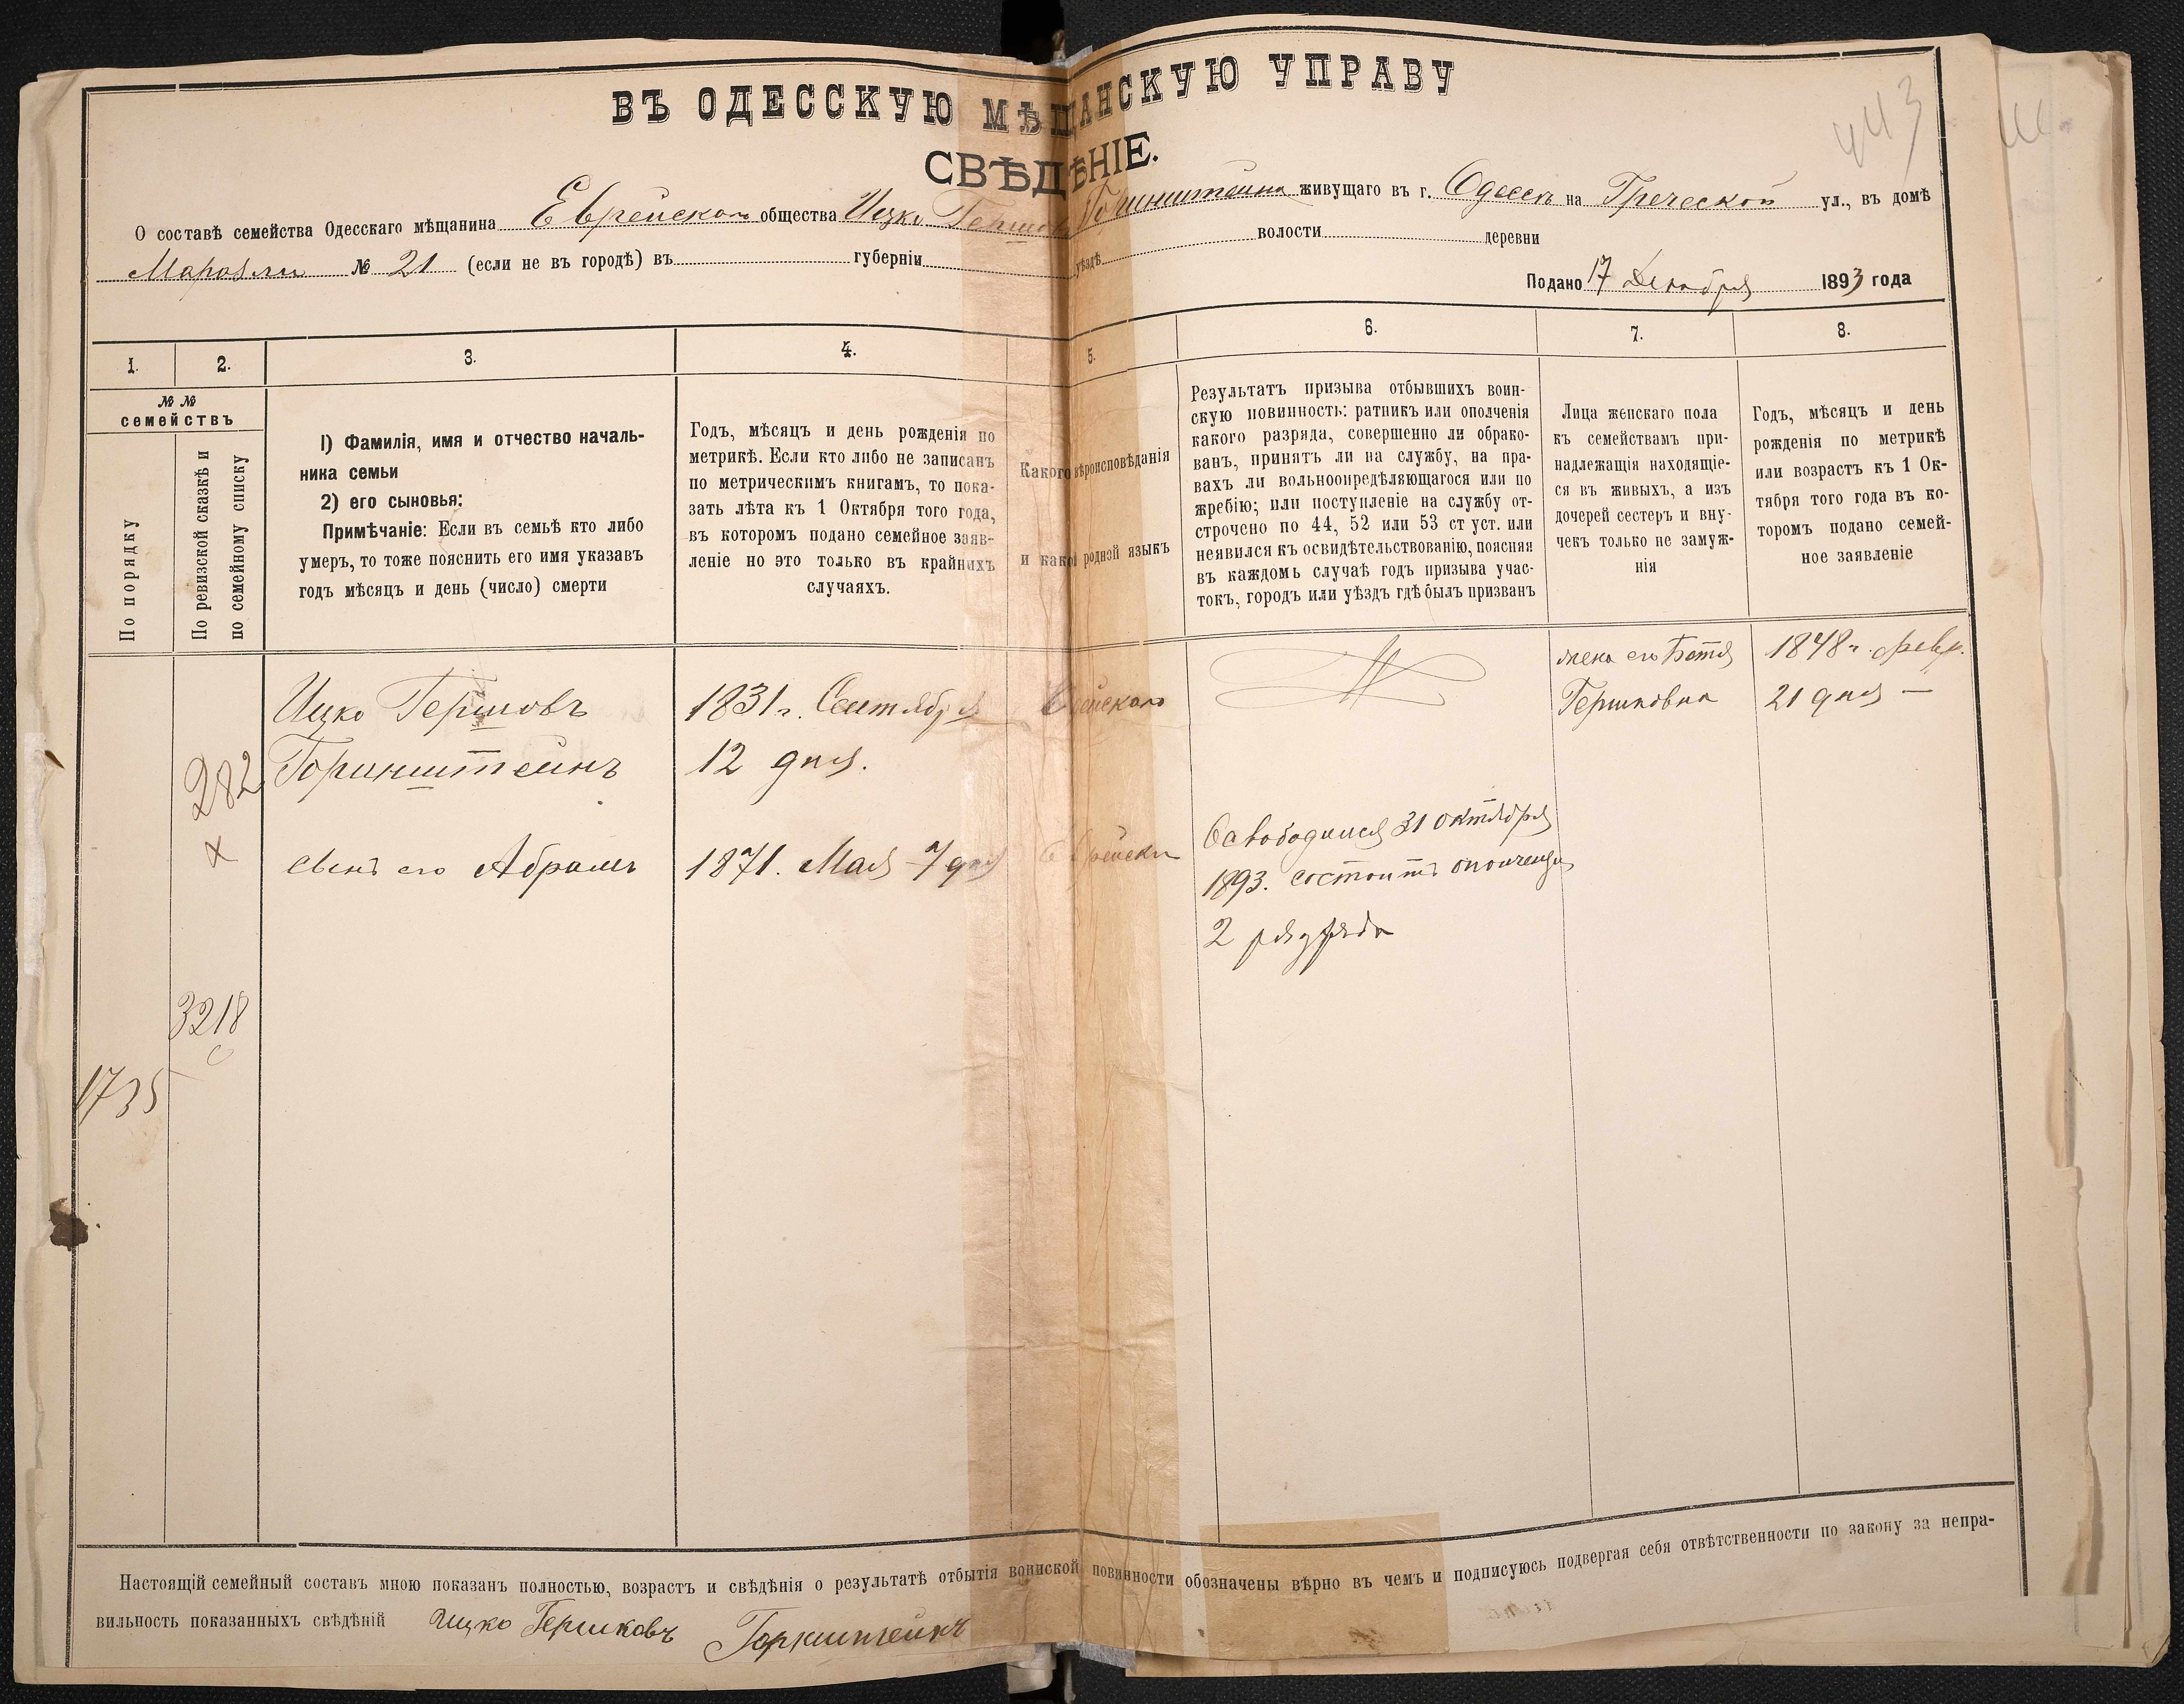 443
ВЪ ОДЕССКУЮ МѢЩАНСКУЮ УПРАВУ
СВѢДѢНІЕ.
О составѣ семейства Одесскаго мѣщанина Еврейскаго общества Ицко Гершов Горинштейна живущаго въ г. Одессѣ на Греческой ул., въ домѣ
Маразли № 21 (если не въ городѣ) въ губерніи уѣздѣ волости деревни
Подано 17 Декабря 1893 года
1. 2. 3. 4. 5. 6. 7. 8.
№ №
семействъ
По порядку
По ревизской сказкѣ и
по семейному списку
1) Фамилія, имя и отчество началь-
ника семьи
2) его сыновья:
Примѣчаніе: Если въ семьѣ кто либо
умеръ, то тоже пояснить его имя указавъ
годъ мѣсяцъ и день (число) смерти
Годъ, мѣсяцъ и день рожденія по
метрикѣ. Если кто либо не записанъ
по метрическимъ книгамъ, то пока-
зать лѣта къ 1 Октября того года,
въ которомъ подано семейное заяв-
леніе но это только въ крайнихъ
случаяхъ.
Какого вѣроисповѣданія
и какой родной языкъ
Результатъ призыва отбывшихъ воин-
скую повинность: ратникъ или ополченія
какого разряда, совершенно ли обрако-
ванъ, принятъ ли на службу, на пра-
вахъ ли вольноопредѣляющагося или по
жребію; или поступленіе на службу от-
строчено по 44, 52 или 53 ст уст. или
неявился къ освидѣтельствованію, поясняя
въ каждомь случаѣ годъ призыва учас-
токъ, городъ или уѣздъ гдѣ былъ призванъ
Лица женскаго пола
къ семействамъ при-
надлежащія находящіе-
ся въ живыхъ, а изъ
дочерей сестеръ и вну-
чекъ только не замуж-
нія
Годъ, мѣсяцъ и день
рожденія по метрикѣ
или возрастъ къ 1 Ок-
тября того года въ ко-
торомъ подано семей-
ное заявленіе
282
х
3218
1735
Ицко Гершовъ
Горинштейнъ
сынъ его Абрамъ
1831 г. Сентября
12 дня.
1871. Мая 7 дня
Освободился 31 октября
1893. состоитъ ополченцъ
2 разряда
жена его Бетя
Гершковна
1848 г. февр.
21 дня —
Настоящій семейный составъ мною показанъ полностью, возрастъ и свѣдѣнія о результатѣ отбытія воинской повинности обозначены вѣрно въ чемъ и подписуюсь подвергая себя отвѣтственности по закону за непра-
вильность показанныхъ свѣдѣній Ицко Гершковъ Горнштейнъ